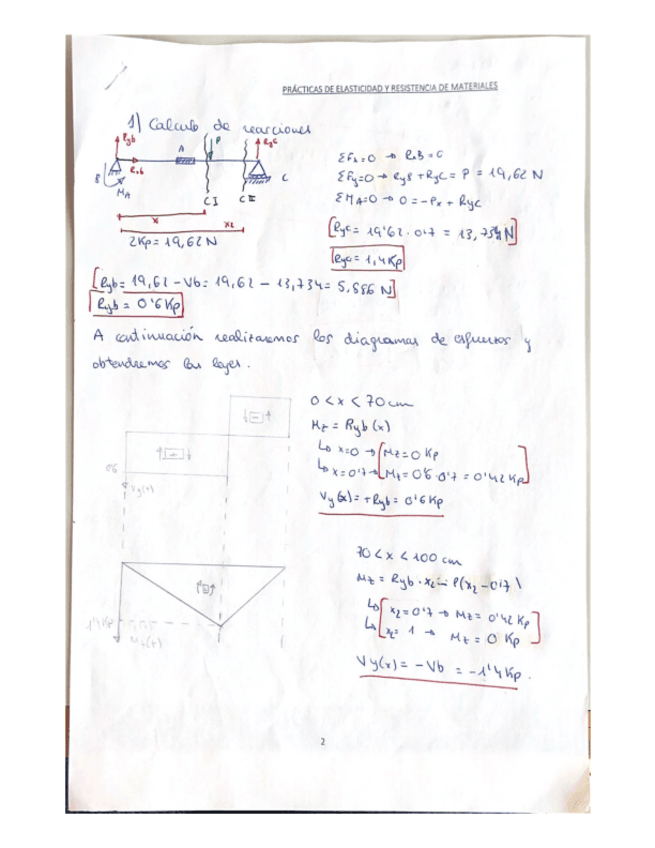 PRÁCTICAS DE ELASTICIDAD Y RESISTENCIA DE MATERIALES
1) Calculo de reacciones
Ryb A P Ryc
Rxb
B MA CI CII C
x x2
2Kp = 19,62 N
ΣFx=0 → RxB=0
ΣFy=0 → RyB + Ryc = P = 19,62 N
ΣMA=0 → 0 = -Px + Ryc
[Ryc = 19'62 · 0'7 = 13,734N]
Ryc = 1,4Kp
[Ryb = 19,62 - Vb = 19,62 - 13,734 = 5,886 N]
Ryb = 0'6 Kp
A continuación realizaremos los diagramas de esfuerzos y
obtendremos las leyes.
0 < x < 70 cm
Mz = Ryb (x)
↳ x=0 → [Mz = 0 Kp
↳ x=0'7 → Mz = 0'6 · 0'7 = 0'42 Kp]
Vy(x) = +Ryb = 0'6 Kp
0'6
Vy(x)
70 < x < 100 cm
Mz = Ryb · x2 - P(x2 - 0'7)
↳ [x2 = 0'7 → Mz = 0'42 Kp
↳ x2 = 1 → Mz = 0 Kp]
Vy(x) = -Vb = -1'4 Kp.
1'4Kp
Mz(x)
2